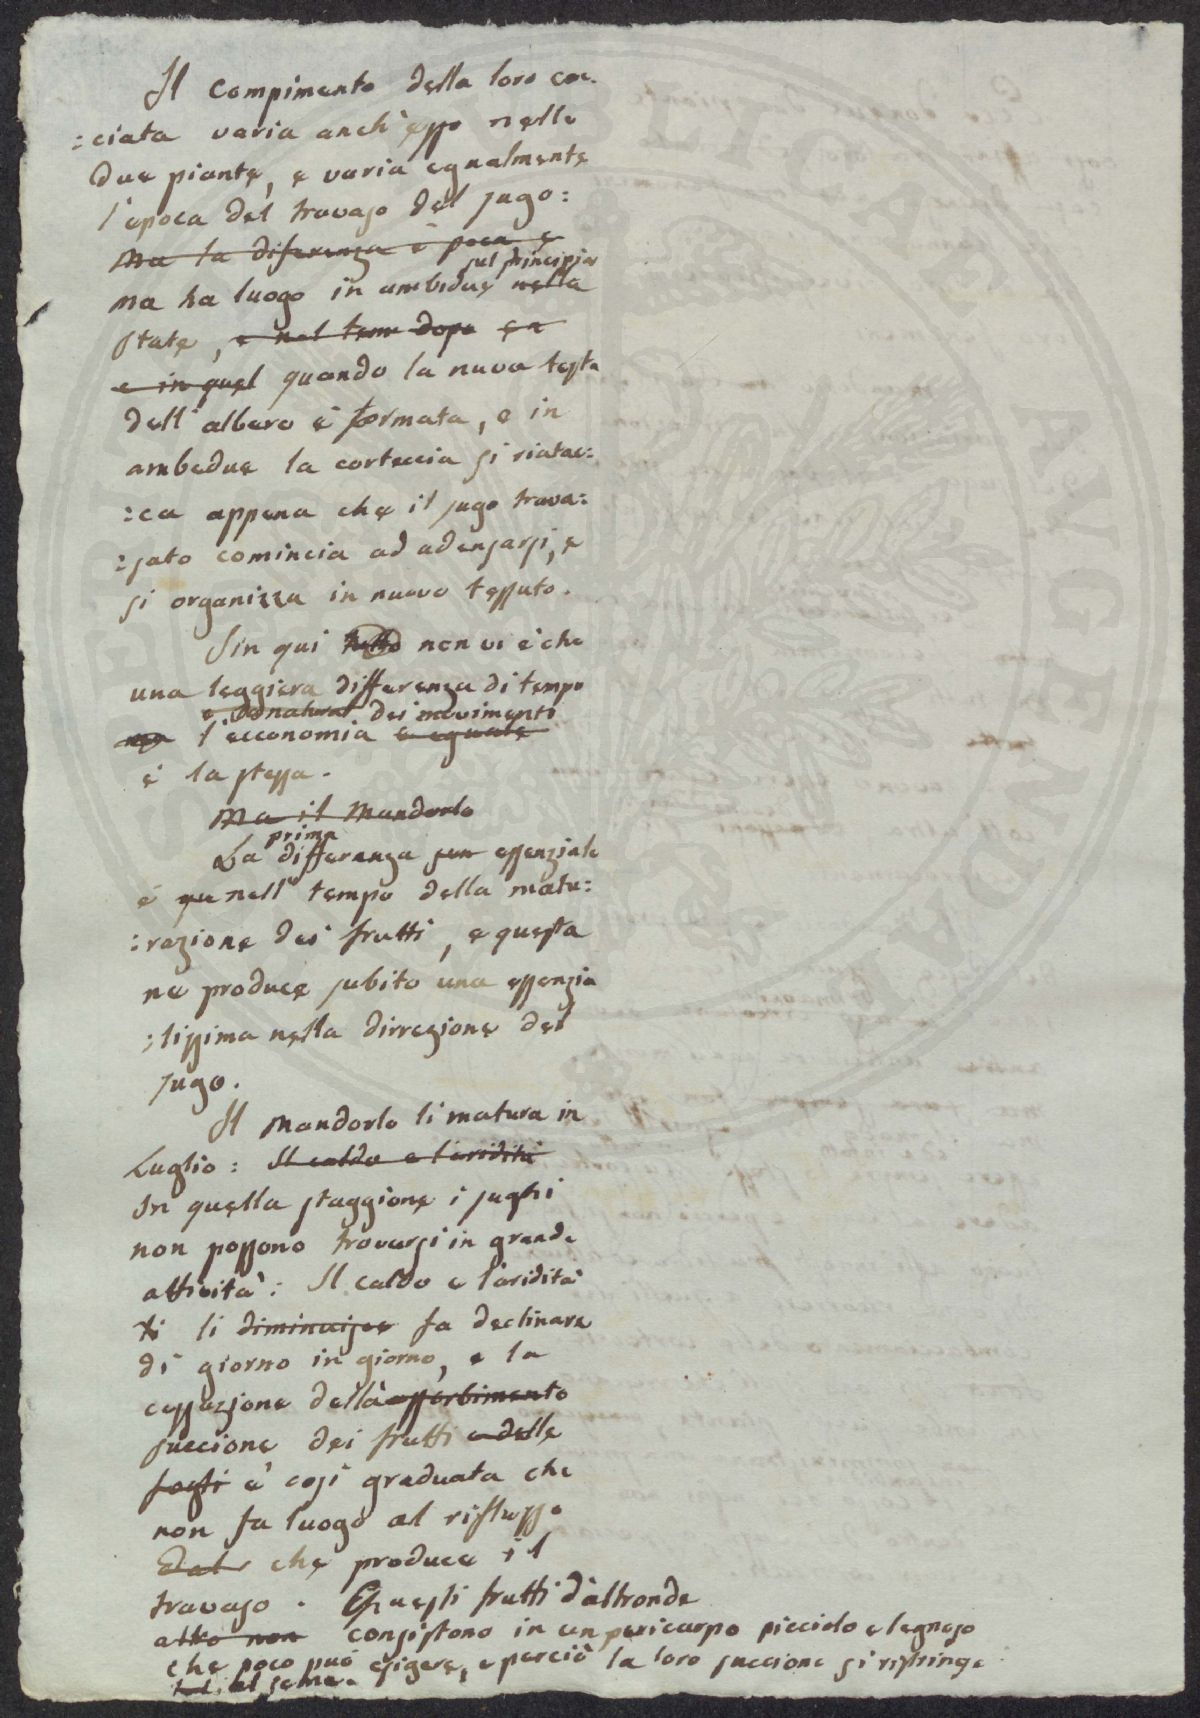 Il compimento della loro cac:
:ciata varia anch'esso nelle
due piante, e varia egualmente
l'epoca del travaso del sugo:
Ma la diferenza è poca e
sul principiar
ma ha luogo in ambidue nella
state, e nel tem dopo en
e in quel quando la nuva testa
dell'albero è formata, e in
ambedue la corteccia si riatac:
:ca appena che il sugo trava:
:sato comincia ad adensarsi, e
si organizza in nuovo tessuto.
Sin qui tutto non vi è che
una leggiera differenza di tempo
e natural dei movimenti
ma l'economia è eguale
è la stessa.
Ma il Mandorlo
prima
La differenza essenziale
è que nell tempo della matu:
:razione dei frutti, e questa
ne produce subito una essenzia
:lissima nella dirrezione del
sugo.
Il Mandorlo li matura in
Luglio: Il caldo e l'aridità
In quella staggione i sughi
non possono trovarsi in grande
attività: Il caldo e l'aridità
li diminuisce fa declinare
di giorno in giorno, e la
cessazione della assorbimento
succione dei frutti e delle
fogli è così graduata che
non fa luogo al riflusso
Dal che produce il
travaso. Questi frutti d'altronde
altro non consistono in un pericarpo picciolo e legnoso
che poco può esigere, e perciò la loro succione si ristringe
al seme.